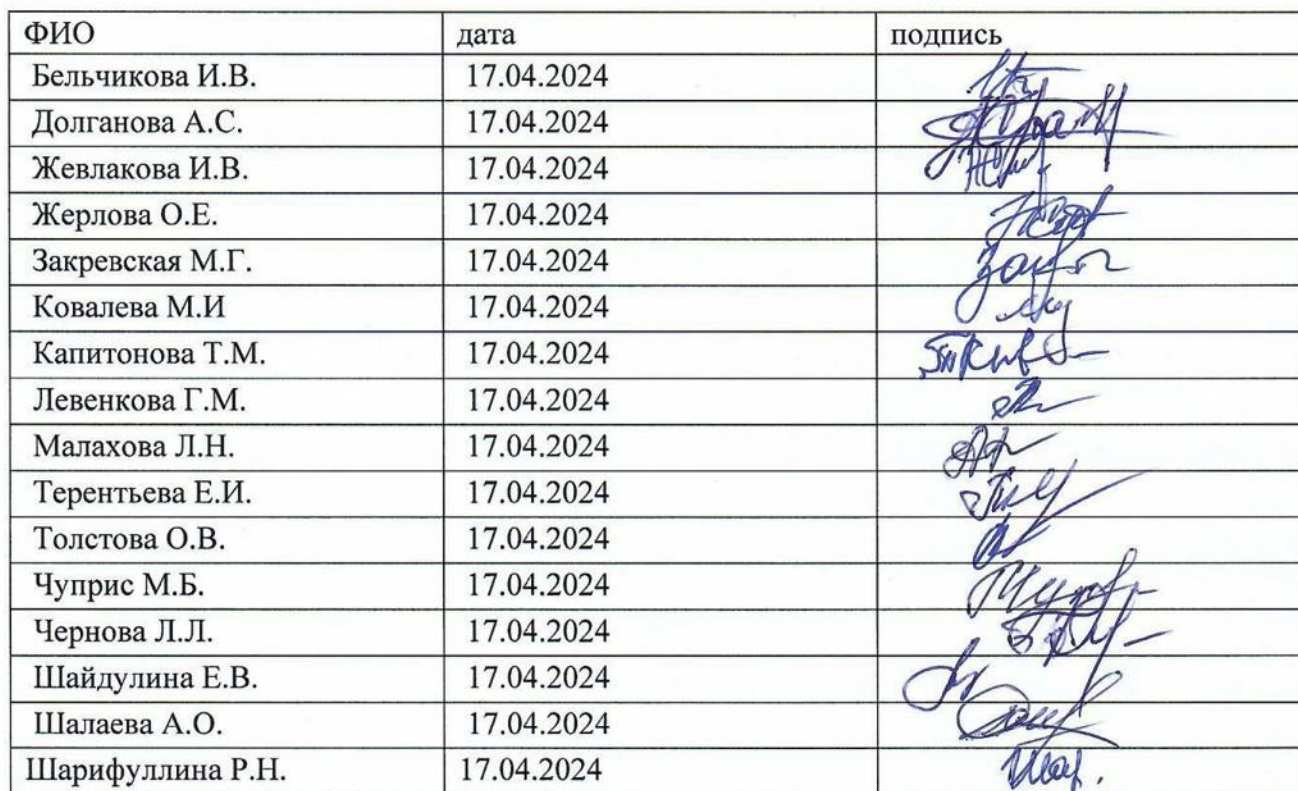 ФИО дата подпись
Бельчикова И.В. 17.04.2024
Долганова А.С. 17.04.2024
Жевлакова И.В. 17.04.2024
Жерлова О.Е. 17.04.2024
Закревская М.Г. 17.04.2024
Ковалева М.И 17.04.2024
Капитонова Т.М. 17.04.2024
Левенкова Г.М. 17.04.2024
Малахова Л.Н. 17.04.2024
Терентьева Е.И. 17.04.2024
Толстова О.В. 17.04.2024
Чуприс М.Б. 17.04.2024
Чернова Л.Л. 17.04.2024
Шайдулина Е.В. 17.04.2024
Шалаева А.О. 17.04.2024
Шарифуллина Р.Н. 17.04.2024